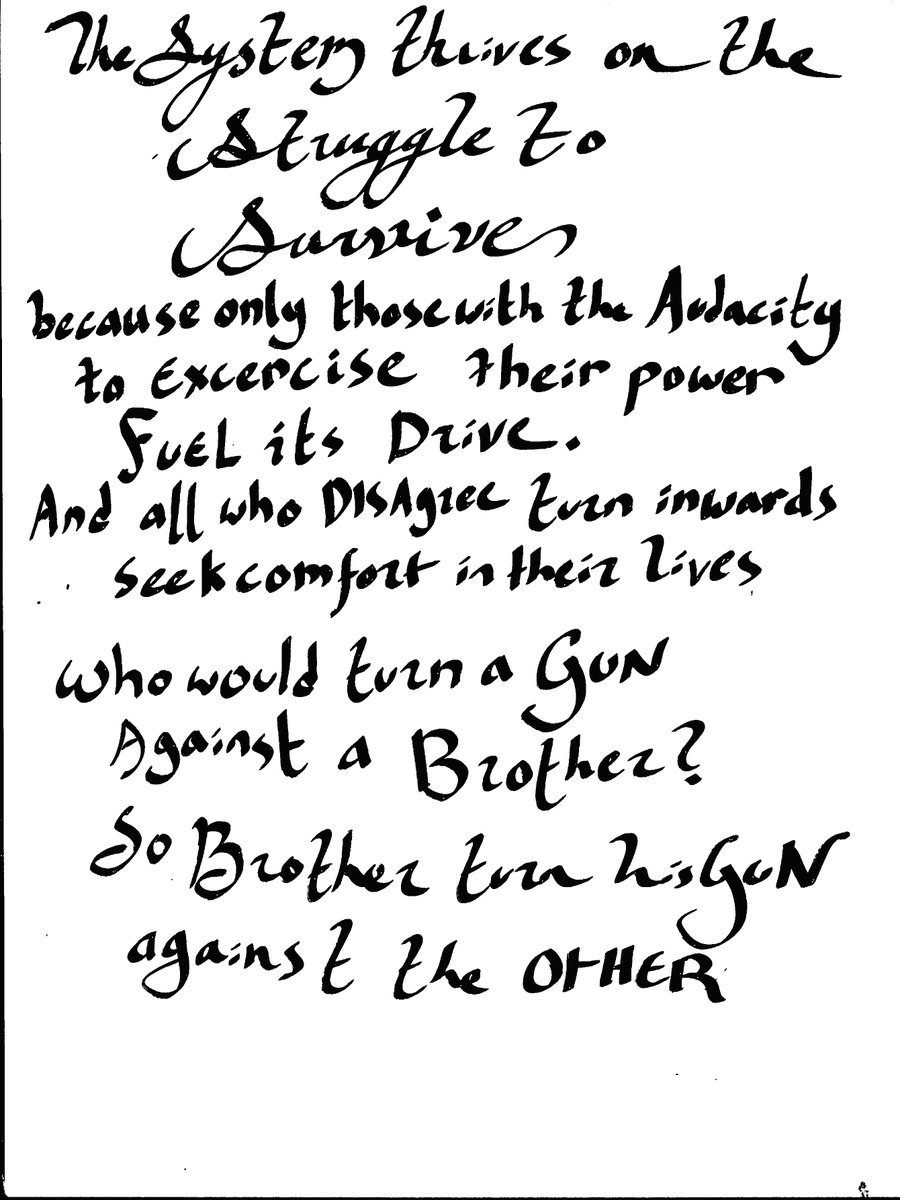 The System thrives on the
Struggle to
Survive
because only those with the Audacity
to Excercise their power
FUEL its Drive.
And all who DISAgree turn inwards
seek comfort in their lives
Who would turn a GUN
Against a Brother?
So Brother turn his GUN
against the OTHER